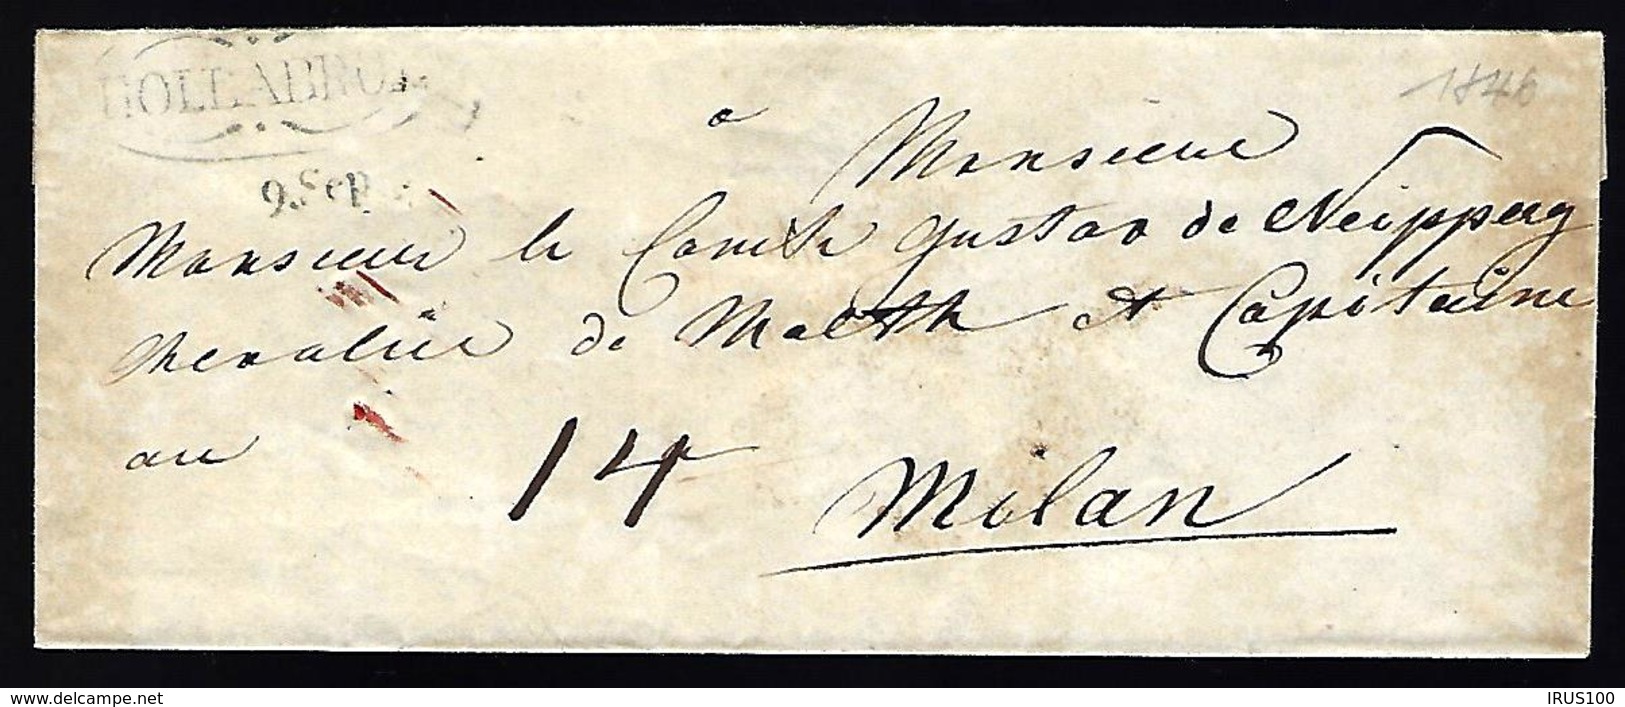 HOLLABRUN
9. Sep
1846
à Monsieur
Monsieur le Comte Gustav de Neipperg
Chevalier de Malthe et Capitaine
au
14
Milan
delcampe.net
IRUS100